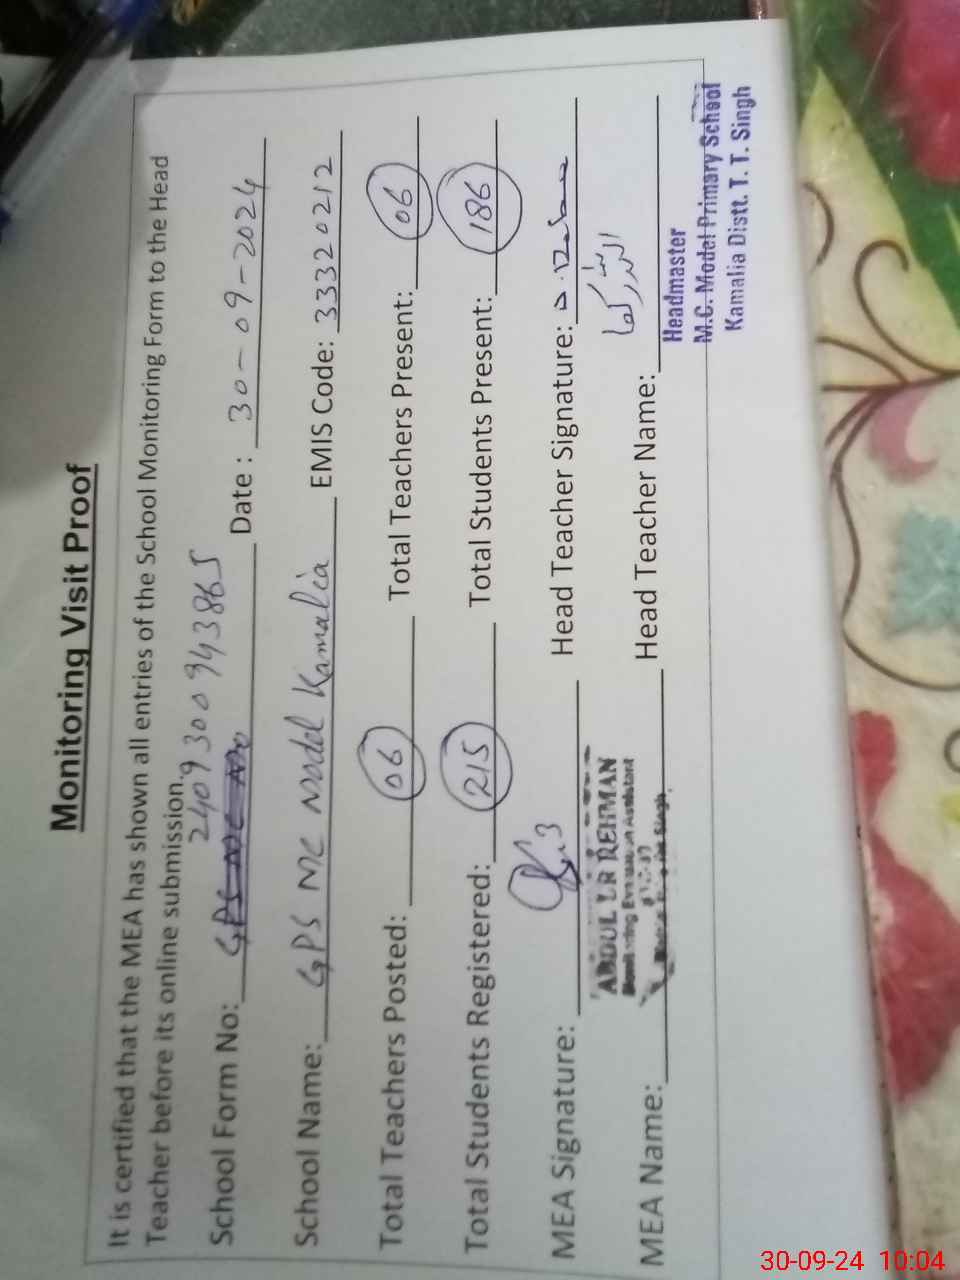 Monitoring Visit Proof
It is certified that the MEA has shown all entries of the School Monitoring Form to the Head
Teacher before its online submission.
2409300943865
School Form No: Date: 30-09-2024
School Name: GPS MC Model Kamalia EMIS Code: 33320212
Total Teachers Posted: 06 Total Teachers Present: 06
Total Students Registered: 215 Total Students Present: 186
MEA Signature: Head Teacher Signature:
ABDUL UR REHMAN
Monitoring Evaluation Assistant
MEA Name: Head Teacher Name:
Headmaster
M.C. Model Primary School
Kamalia Distt. T. T. Singh
30-09-24 10:04